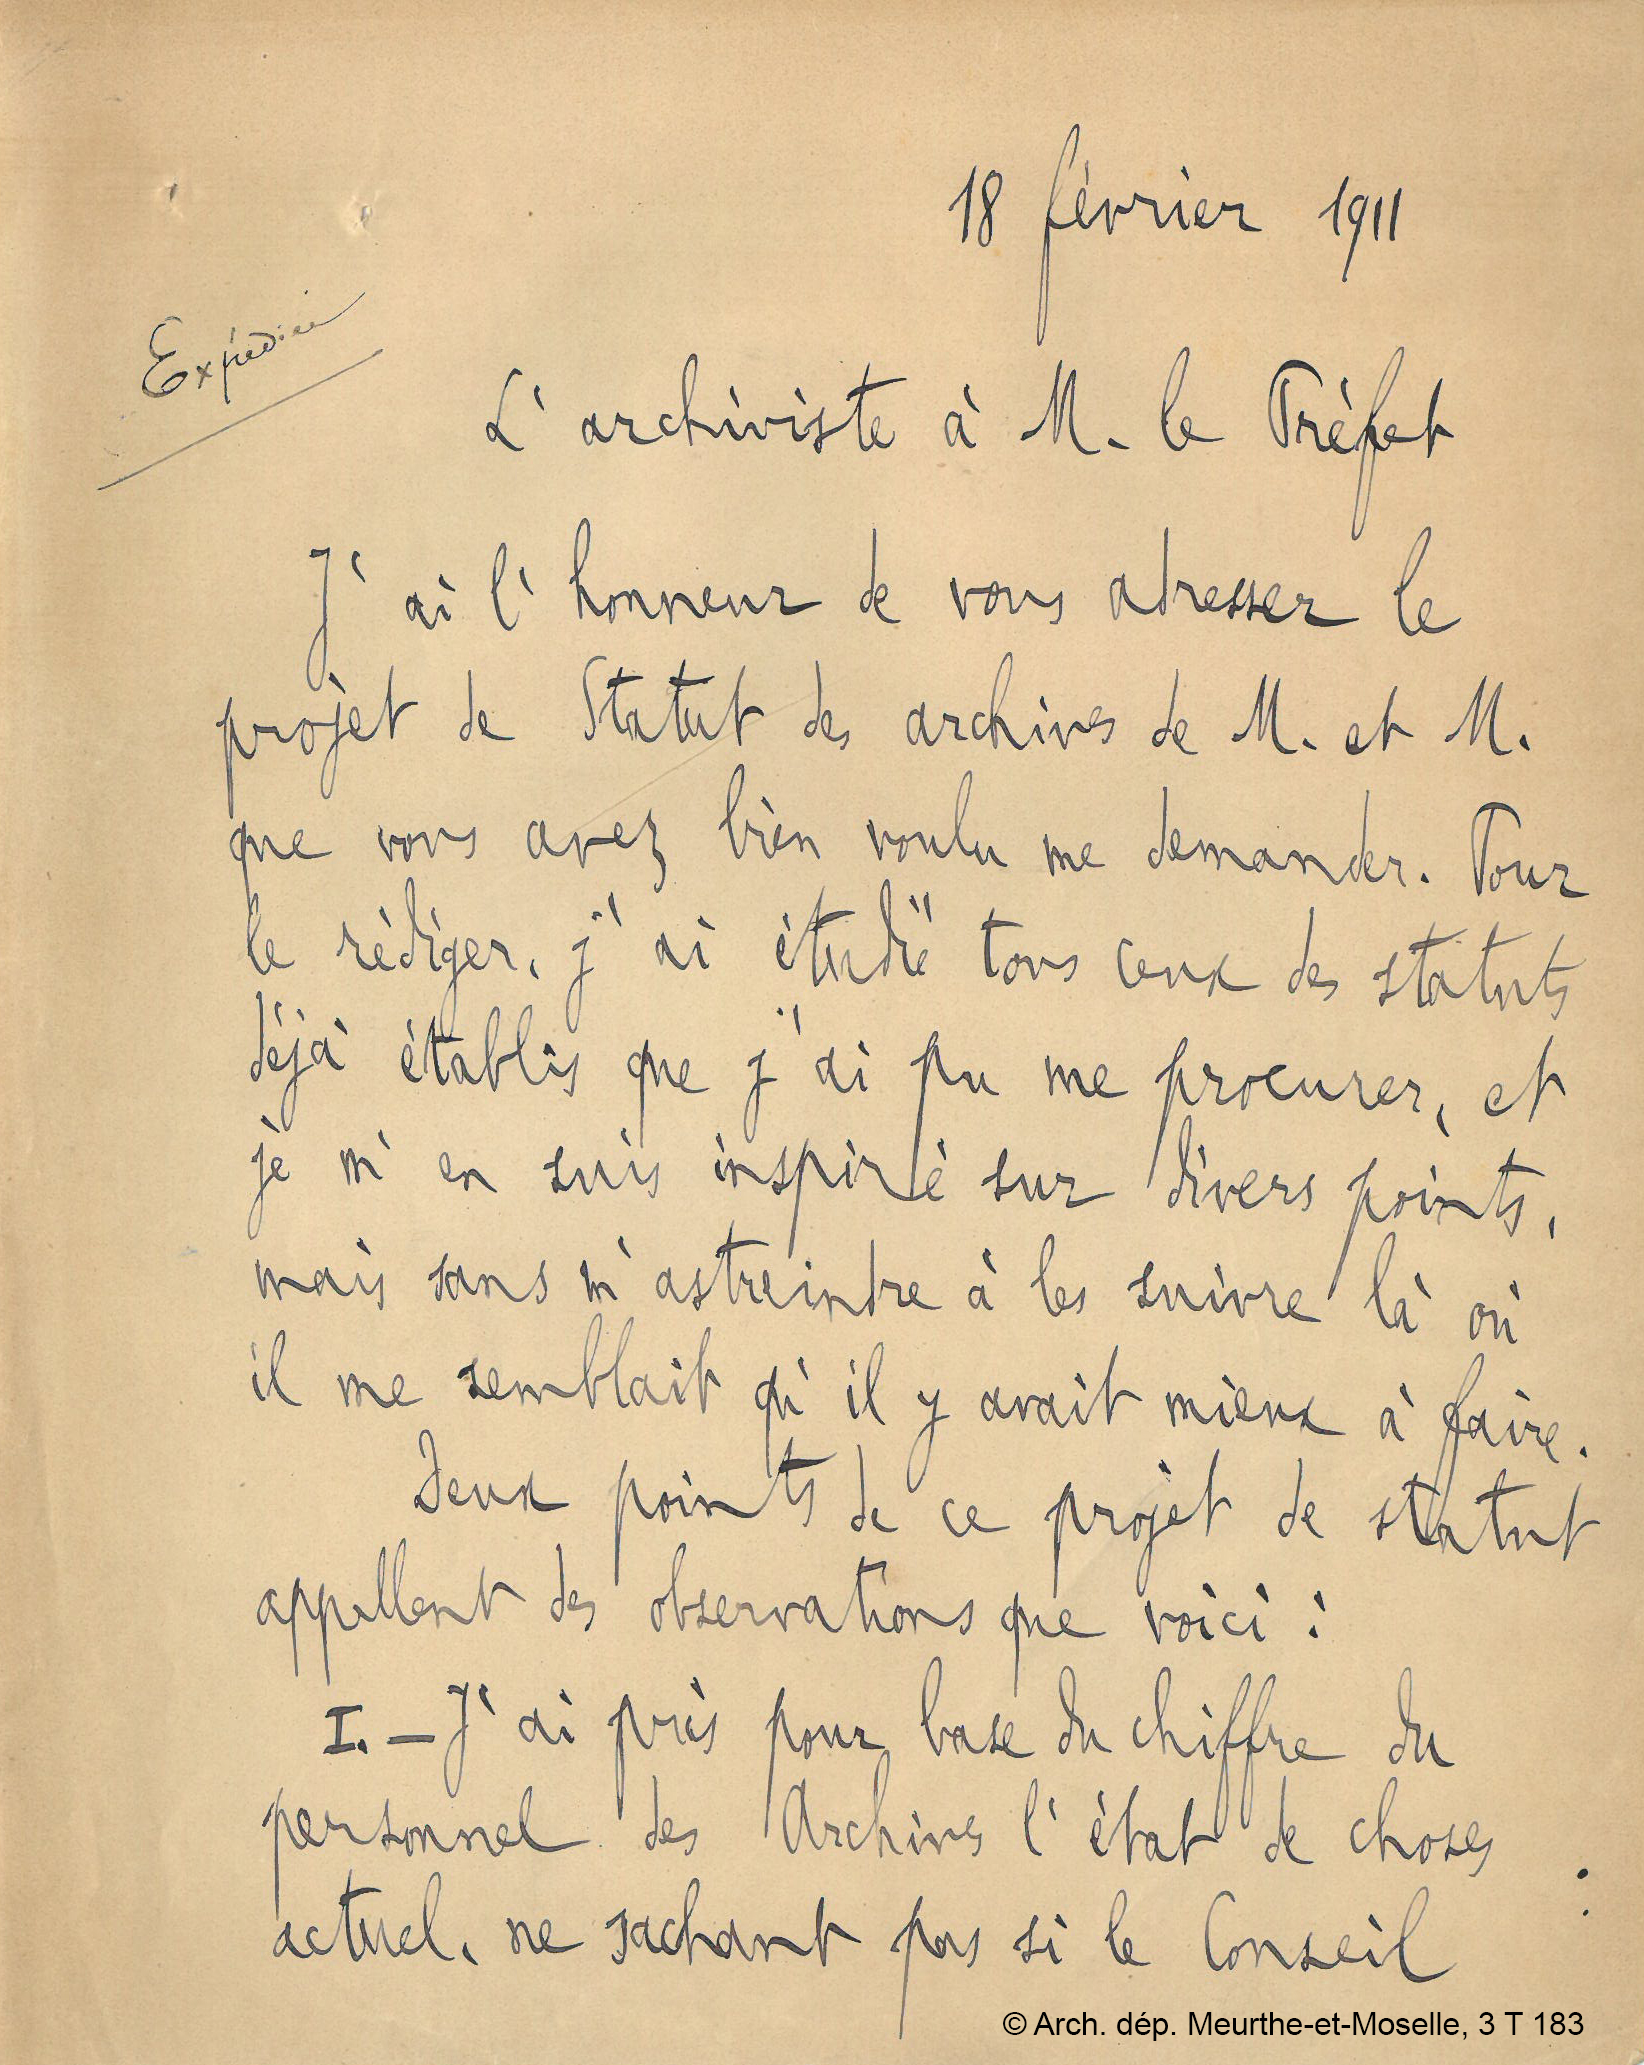 18 février 1911
Expédiée
L'archiviste à M. le Préfet
J'ai l'honneur de vous adresser le
projet de Statut des archives de M. et M.
que vous avez bien voulu me demander. Pour
le rédiger, j'ai étudié tous ceux des statuts
déjà établis que j'ai pu me procurer, et
je m'en suis inspiré sur divers points,
mais sans m'astreindre à les suivre là où
il me semblait qu'il y avait mieux à faire.
Deux points de ce projet de statut
appellent des observations que voici :
I. — J'ai pris pour base du chiffre du
personnel des Archives l'état de choses
actuel, ne sachant pas si le Conseil
© Arch. dép. Meurthe-et-Moselle, 3 T 183